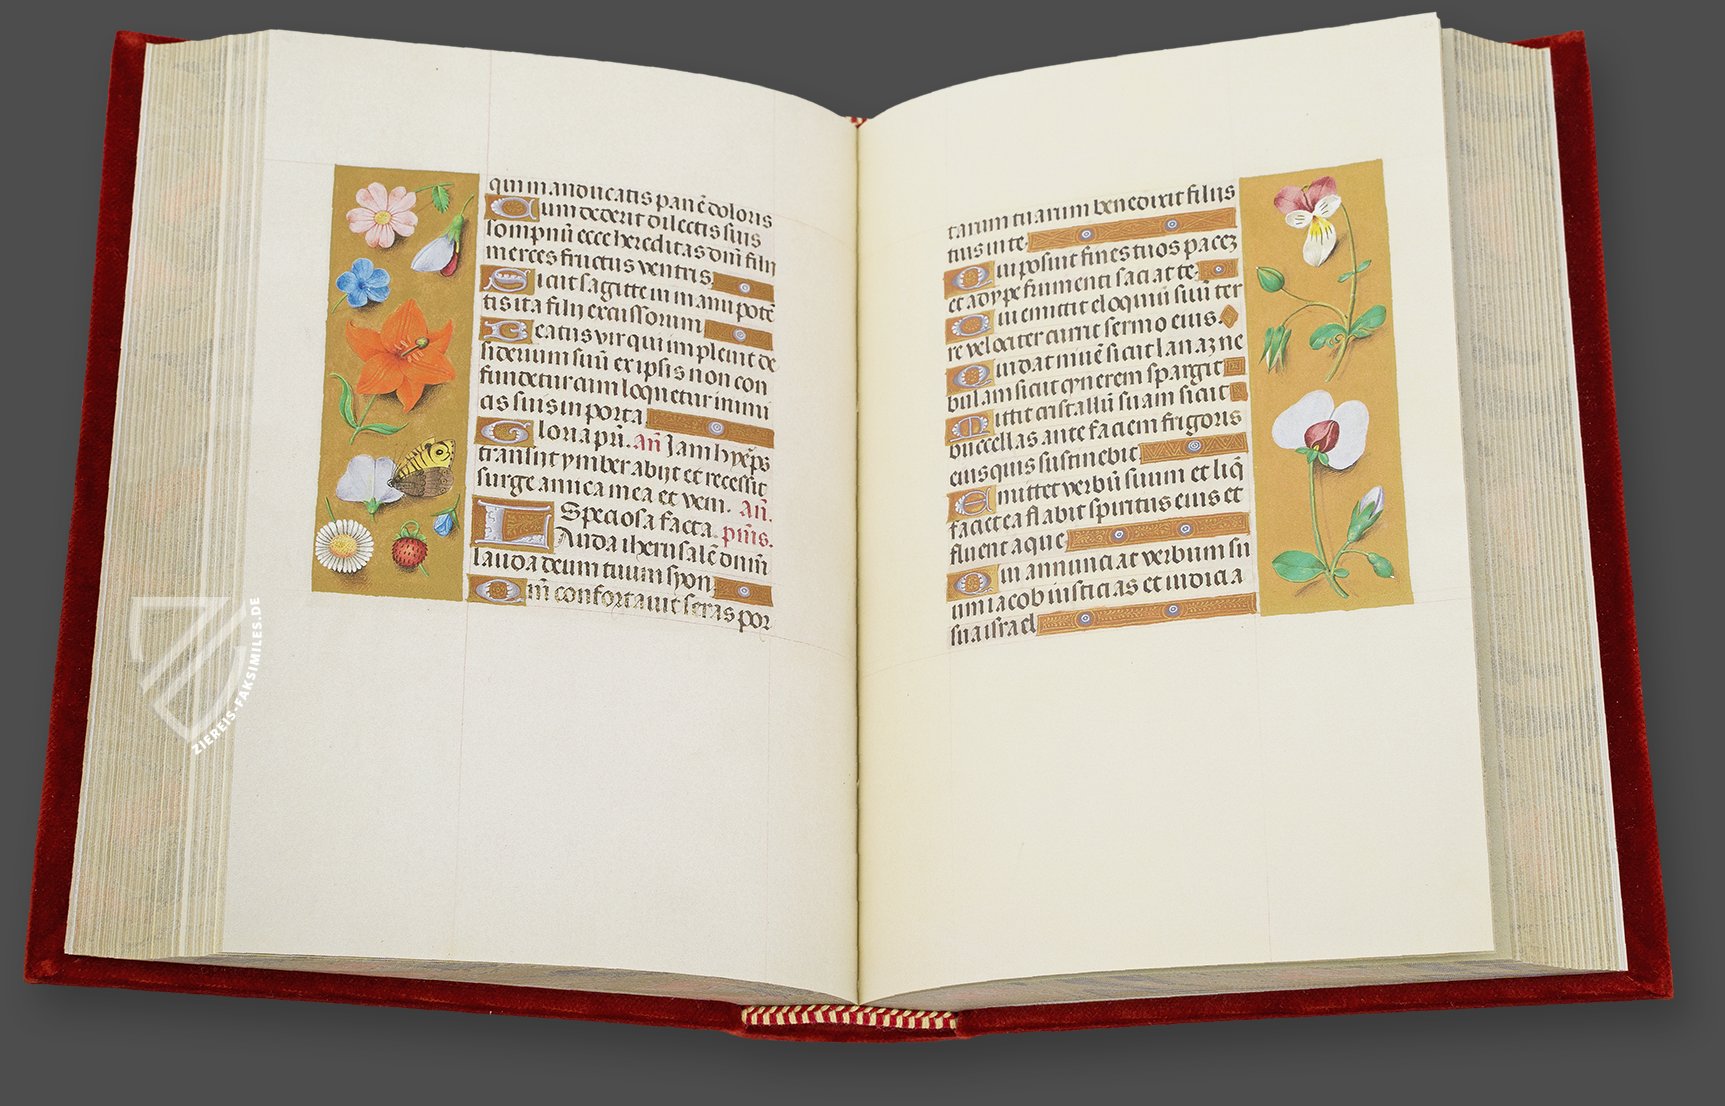 qui manducatis panē doloris
Cum dederit dilectis suis
sompnū ecce hereditas dnī filij
merces fructus ventris
Sicut sagitte in manu potē
tis ita filij excussorum
Beatus vir qui impleuit de
sideuum suū ex ipsis non con
fundetur cum loquetur inimi
cis suis in porta
Gloria pri. Añ Jam hyēps
transijt ymber abijt et recessit
surge amica mea et veni. Añ.
Speciosa facta. psm̄s.
LAuda iherusalē dnm̄
lauda deum tuum syon
Qm̄ confortauit seras por
tarum tuarum benedixit filijs
tuis in te
Qui posuit fines tuos pacez
et adype frumenti saciat te
Qui emittit eloquiū suū ter
re velociter currit sermo eius.
Qui dat niuē sicut lanaz ne
bulam sicut cynerem spargit
Mittit cristallū suam sicut
buccellas ante faciem frigoris
eius quis sustinebit
Emittet verbū suum et liq̄
faciet ea flabit spiritus eius et
fluent aque
Qui annunciat verbum su
um iacob iusticias et iudicia
sua israel
ZIEREIS-FAKSIMILES.DE